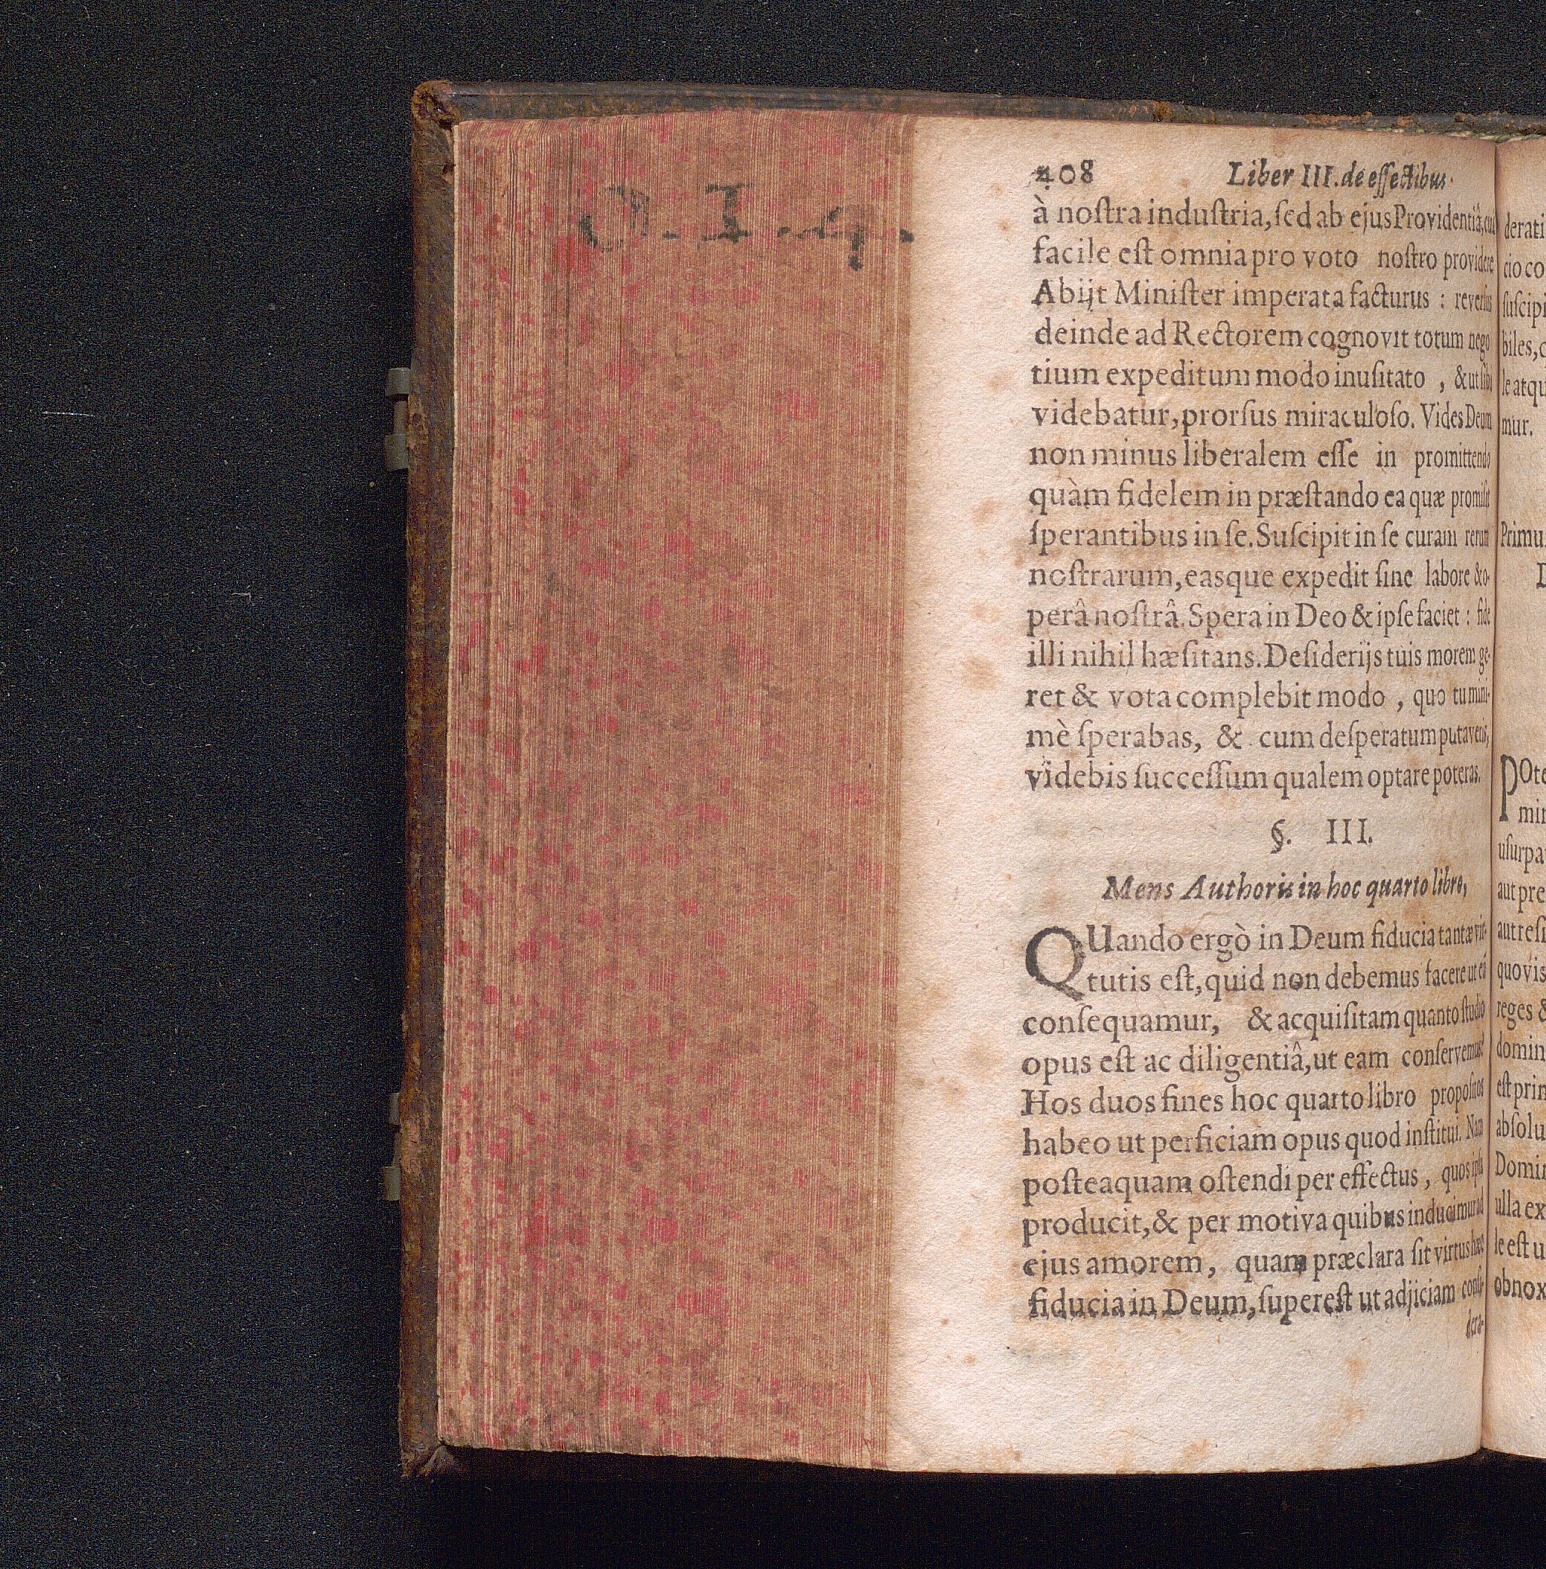 408 Liber III. de effectibus.
à noſtra induſtria, ſed ab ejus Providentiâ, cui
facile eſt omnia pro voto noſtro providere
Abijt Miniſter imperata facturus : reverſus
deinde ad Rectorem cognovit totum nego
tium expeditum modo inuſitato , & ut
videbatur, prorſus miraculoſo. Vides Deum
non minus liberalem eſſe in promittendo
quàm fidelem in præſtando ea quæ promiſit
ſperantibus in ſe. Suſcipit in ſe curam rerum
noſtrarum, easque expedit ſine labore & o-
perâ noſtrâ. Spera in Deo & ipſe faciet : fide
illi nihil hæſitans. Deſiderijs tuis morem ge-
ret & vota complebit modo , quo tu mini-
mè ſperabas, & cum deſperatum putaveris,
videbis ſucceſſum qualem optare poteras.
§. III.
Mens Authoris in hoc quarto libro,
QUando ergò in Deum fiducia tantæ vir-
tutis eſt, quid non debemus facere ut eâ
conſequamur, & acquiſitam quanto ſtudio
opus eſt ac diligentiâ, ut eam conſervemus?
Hos duos fines hoc quarto libro propoſitos
habeo ut perficiam opus quod inſtitui. Nam
poſteaquam oſtendi per effectus , quos ipſa
producit, & per motiva quibus inducimur ad
ejus amorem, quam præclara ſit virtus hæc
fiducia in Deum, ſupereſt ut adjiciam conſi-
dera-
derati
cio co
ſuſcipi
biles, c
le atqu
mur.
Primu
POte
min
uſurpa
aut pre
aut reſi
quovis
reges &
domin
eſt prin
abſolu
Domin
ulla ex
le eſt u
obnox